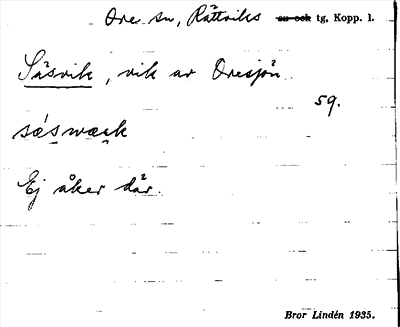 Ore sn, Rättviks sn och tg, Kopp. l.
Såsvik, vik av Oresjön.
59.
sǽswæ̨k
Ej åker där.
Bror Lindén 1935.